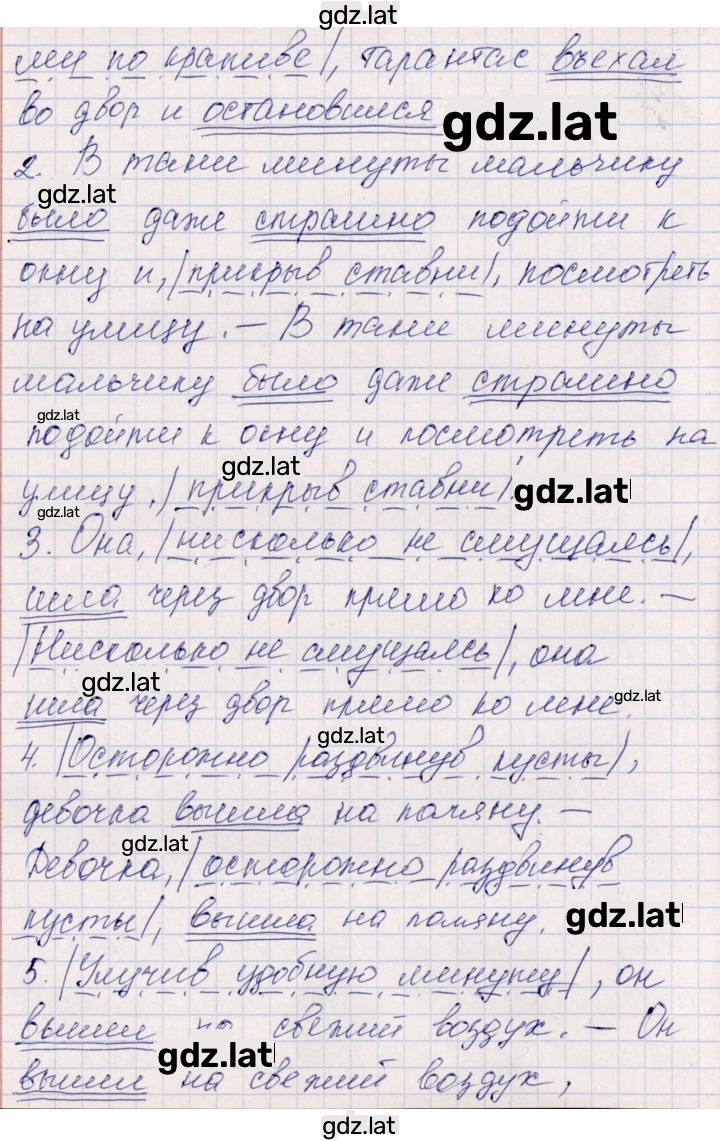 gdz.lat
ми по крапиве|, тарантас въехал
во двор и остановился
gdz.lat
2. В такие минуты мальчику
gdz.lat
было даже страшно подойти к
окну и, |прикрыв ставни|, посмотреть
на улицу. – В такие минуты
мальчику было даже страшно
gdz.lat
подойти к окну и посмотреть на
gdz.lat
улицу, |прикрыв ставни|.
gdz.lat
gdz.lat
3. Она, |нисколько не смущаясь|,
шла через двор прямо ко мне. –
|Нисколько не смущаясь|, она
gdz.lat
gdz.lat
шла через двор прямо ко мне.
gdz.lat
4. |Осторожно раздвинув кусты|,
девочка вышла на поляну. –
gdz.lat
Девочка, |осторожно раздвинув
кусты|, вышла на поляну.
gdz.lat
5. |Улучив удобную минуту|, он
вышел на свежий воздух. – Он
gdz.lat
вышел на свежий воздух,
gdz.lat